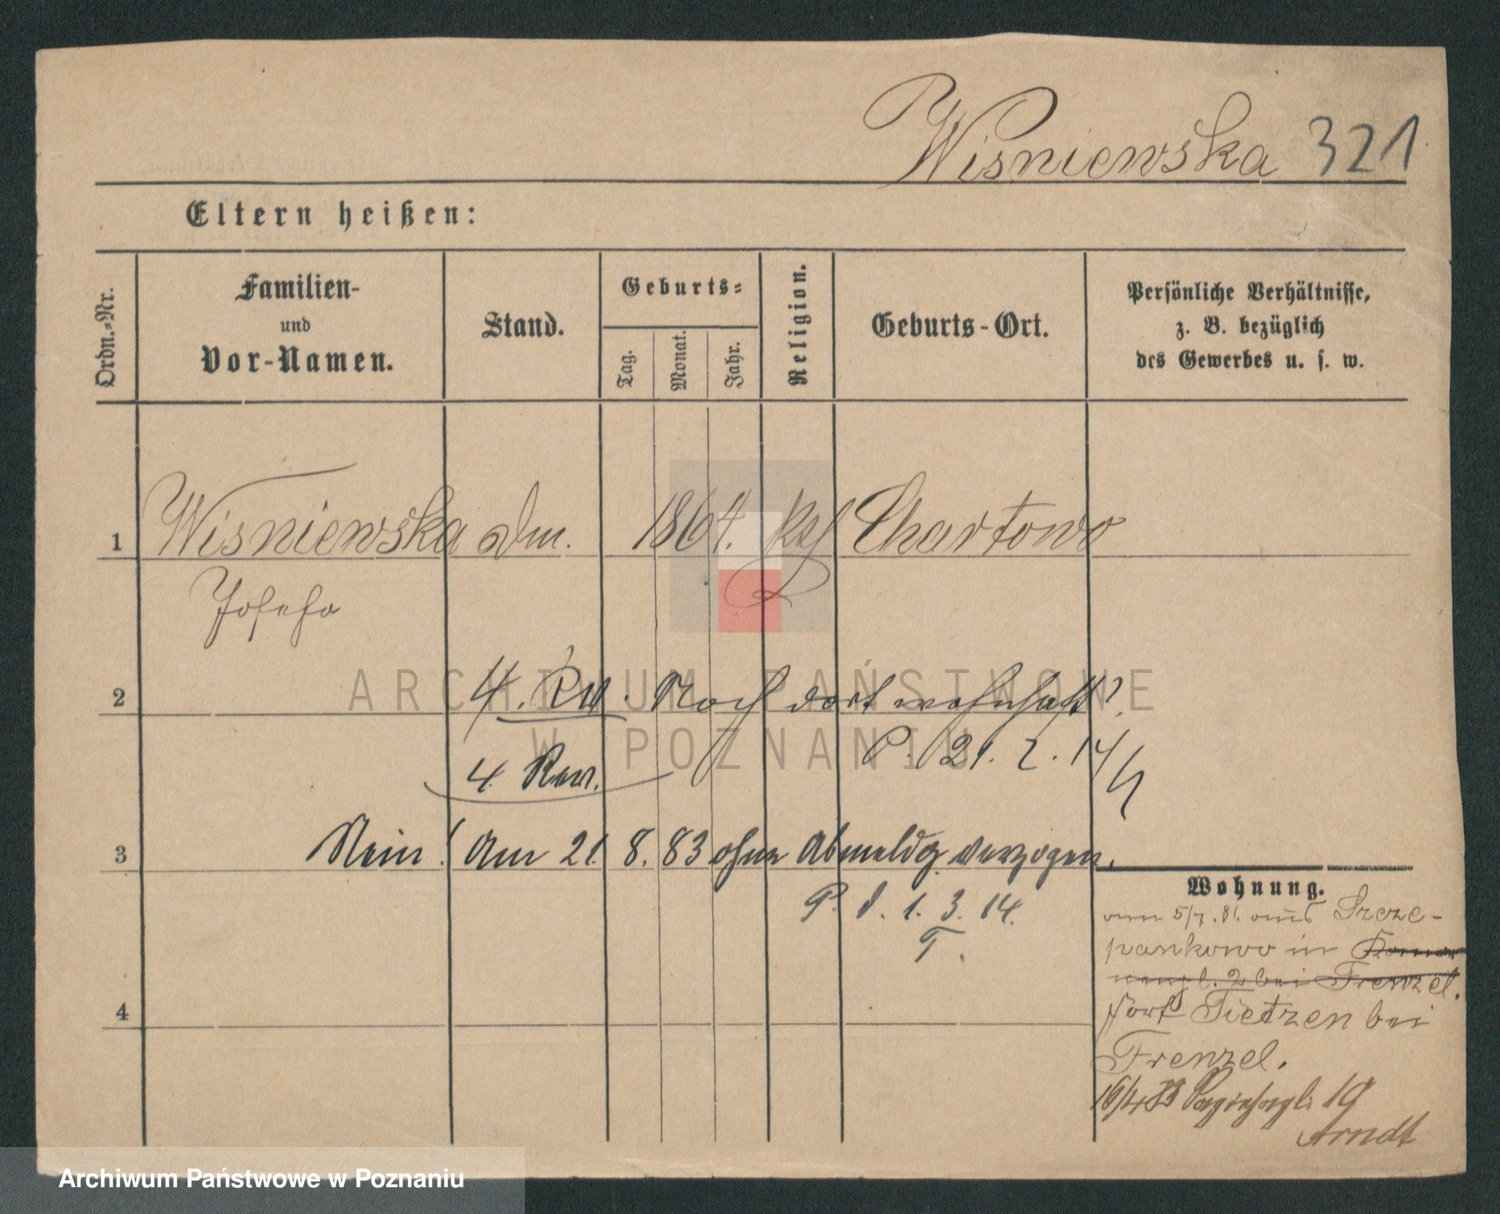 Wisniewska 321
Eltern heißen:
Ordn.-Nr.
Familien-
und
Vor-Namen.
Stand.
Geburts-
Tag.
Monat.
Jahr.
Religion.
Geburts-Ort.
Persönliche Verhältnisse,
z. B. bezüglich
des Gewerbes u. s. w.
1 Wisniewska 1864. Chartowo
Josefa
2 4. Rev. Noch dort wohnhaft?
P. 21. 2. 14
4. Rev.
3 Nein! Am 21. 8. 83 ohne Abmeldg verzogen.
P. d. 1. 3. 14.
T.
4
Wohnung.
am 5/7. 81. aus Szcze-
pankowo in
2 bei Frenzel.
Fort Tietzen bei
Frenzel.
16/4 83 19
Arndt
ARCHIWUM PAŃSTWOWE
W POZNANIU
Archiwum Państwowe w Poznaniu